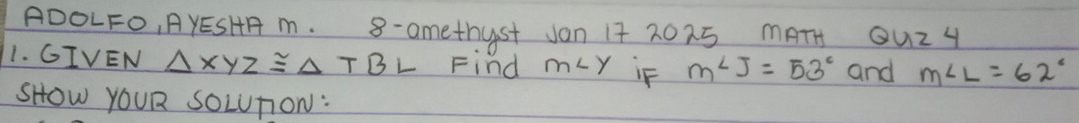 ADOLFO, AYESHA M. 8-amethyst Jan 17 2025 MATH QUZ 4
1. GIVEN △XYZ ≅ △ TBL Find m∠Y iF m∠J = 53° and m∠L = 62°
SHOW YOUR SOLUTION: